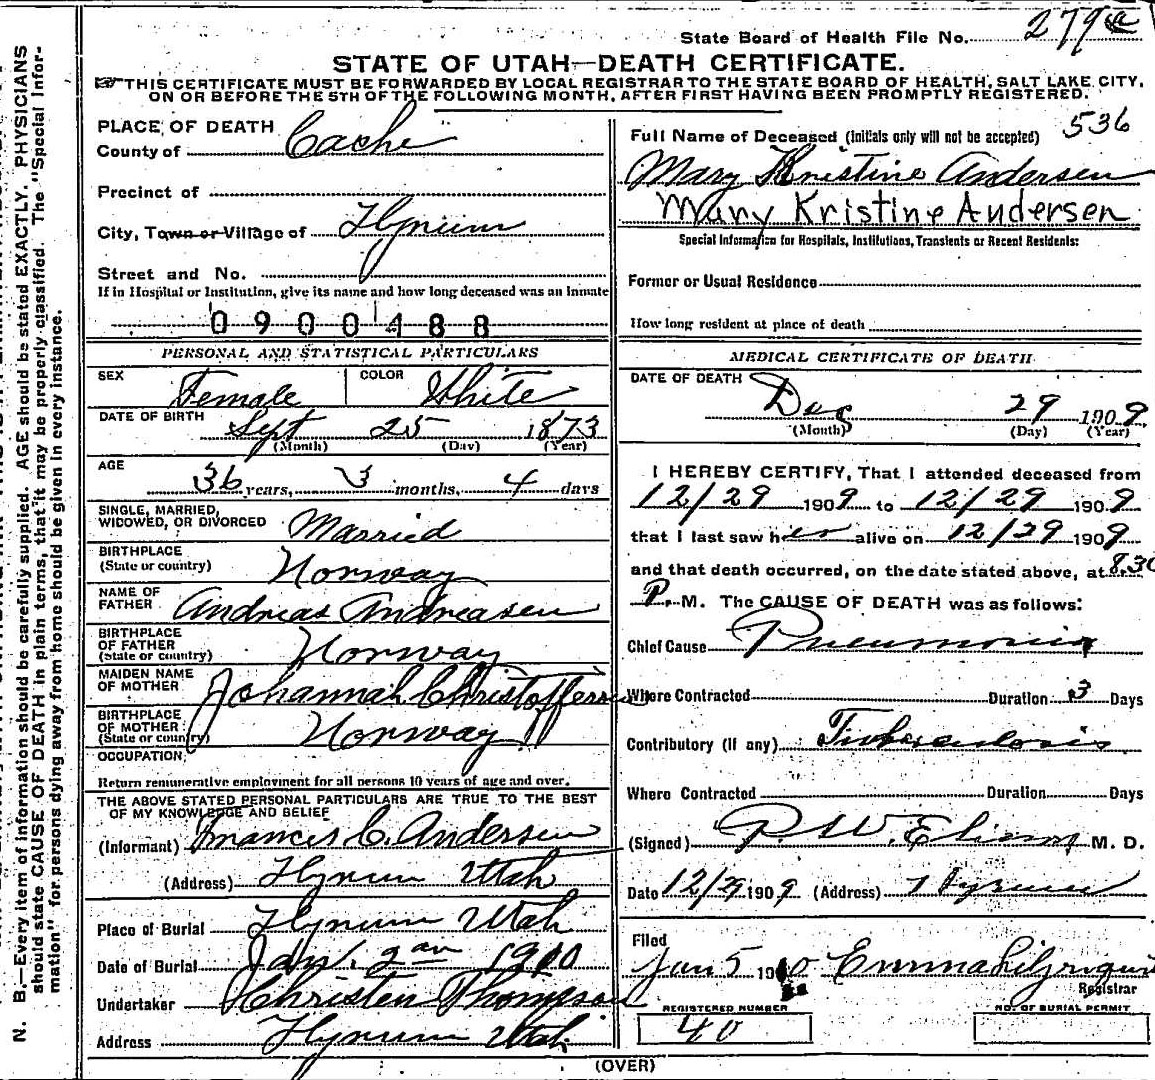 State Board of Health File No. 279
STATE OF UTAH—DEATH CERTIFICATE.
THIS CERTIFICATE MUST BE FORWARDED BY LOCAL REGISTRAR TO THE STATE BOARD OF HEALTH, SALT LAKE CITY,
ON OR BEFORE THE 5TH OF THE FOLLOWING MONTH, AFTER FIRST HAVING BEEN PROMPTLY REGISTERED.
PLACE OF DEATH
County of Cache
Precinct of
City, Town or Village of Hyrum
Street and No.
If in Hospital or Institution, give its name and how long deceased was an inmate
0900488
PERSONAL AND STATISTICAL PARTICULARS
SEX Female COLOR White
DATE OF BIRTH Sept 25 1873
(Month) (Day) (Year)
AGE
36 years, 3 months, 4 days
SINGLE, MARRIED,
WIDOWED, OR DIVORCED Married
BIRTHPLACE
(State or country) Norway
NAME OF
FATHER Andreas Andreasen
BIRTHPLACE
OF FATHER
(State or country) Norway
MAIDEN NAME
OF MOTHER Johannah Christoffersen
BIRTHPLACE
OF MOTHER
(State or country) Norway
OCCUPATION
Return remunerative employment for all persons 10 years of age and over.
THE ABOVE STATED PERSONAL PARTICULARS ARE TRUE TO THE BEST
OF MY KNOWLEDGE AND BELIEF
(Informant) Francis C. Andersen
(Address) Hyrum Utah
Place of Burial Hyrum Utah
Date of Burial Jan. 2 1910
Undertaker Christen Thomeson
Address Hyrum Utah
536
Full Name of Deceased (Initials only will not be accepted)
Mary Kristine Andersen
Mary Kristine Andersen
Special Information for Hospitals, Institutions, Transients or Recent Residents:
Former or Usual Residence
How long resident at place of death
MEDICAL CERTIFICATE OF DEATH
DATE OF DEATH
Dec 29 1909
(Month) (Day) (Year)
I HEREBY CERTIFY, That I attended deceased from
12/29 1909 to 12/29 1909
that I last saw her alive on 12/29 1909
and that death occurred, on the date stated above, at 8.30
P. M. The CAUSE OF DEATH was as follows:
Chief Cause Pneumonia
Where Contracted Duration 3 Days
Contributory (if any) Tuberculosis
Where Contracted Duration Days
(Signed) M. D.
Date 12/29 1909 (Address) Hyrum
Filed
Jan 5 1910
Registrar
REGISTERED NUMBER
40
NO. OF BURIAL PERMIT
(OVER)
N. B.—Every item of information should be carefully supplied. AGE should be stated EXACTLY. PHYSICIANS
should state CAUSE OF DEATH in plain terms, that it may be properly classified. The "Special Infor-
mation" for persons dying away from home should be given in every instance.